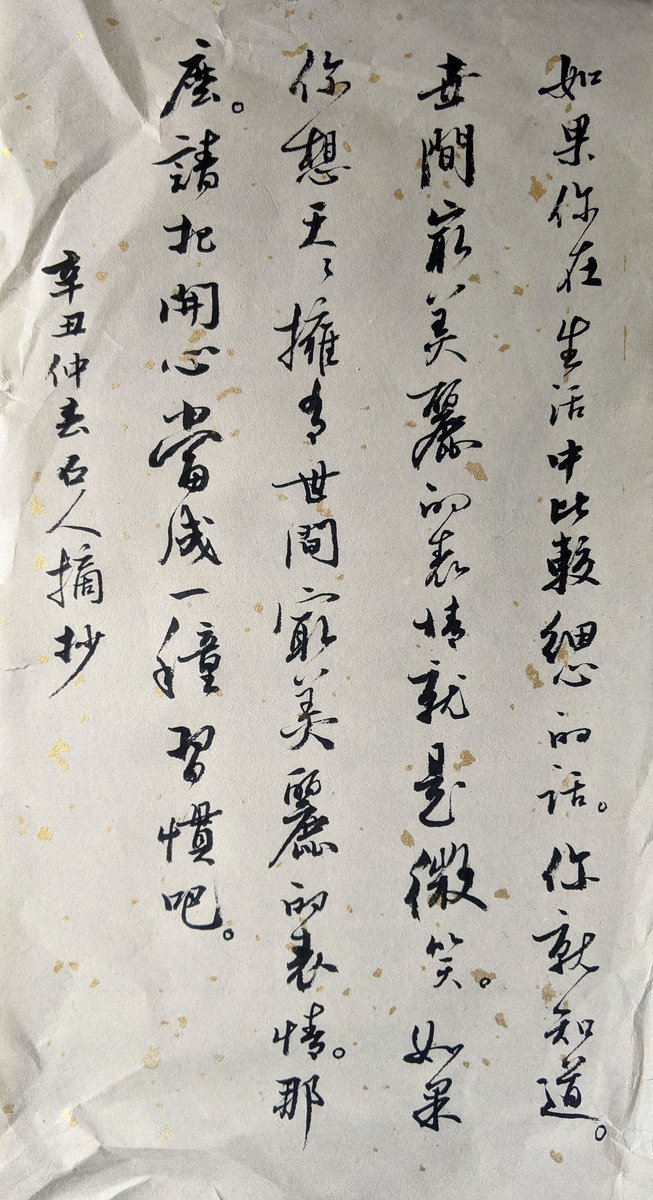 如果你在生活中比較細心的話。你就知道。
世間最美麗的表情就是微笑。如果
你想天天擁有世間最美麗的表情。那
麼。請把開心當成一種習慣吧。
辛丑仲春石人摘抄